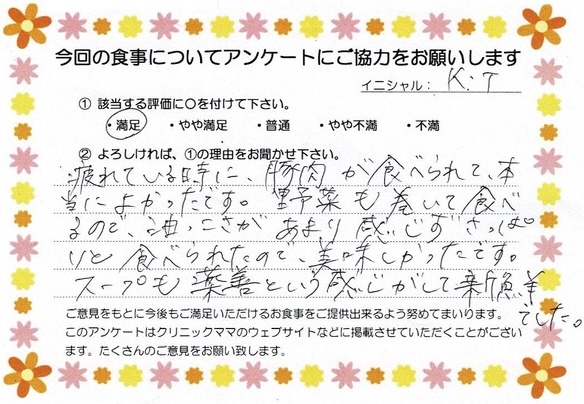 今回の食事についてアンケートにご協力をお願いします
イニシャル： K.T
① 該当する評価に○を付けて下さい。
・満足 ・やや満足 ・普通 ・やや不満 ・不満
② よろしければ、①の理由をお聞かせ下さい。
疲れている時に、豚肉が食べられて、本
当によかったです。野菜も巻いて食べ
るので、油っこさがあまり感じずさっぱ
りと食べられたので、美味しかったです。
スープも薬善という感じがして新鮮
でした。
ご意見をもとに今後もご満足いただけるお食事をご提供出来るよう努めてまいります。
このアンケートはクリニックママのウェブサイトなどに掲載させていただくことがござい
ます。たくさんのご意見をお願い致します。